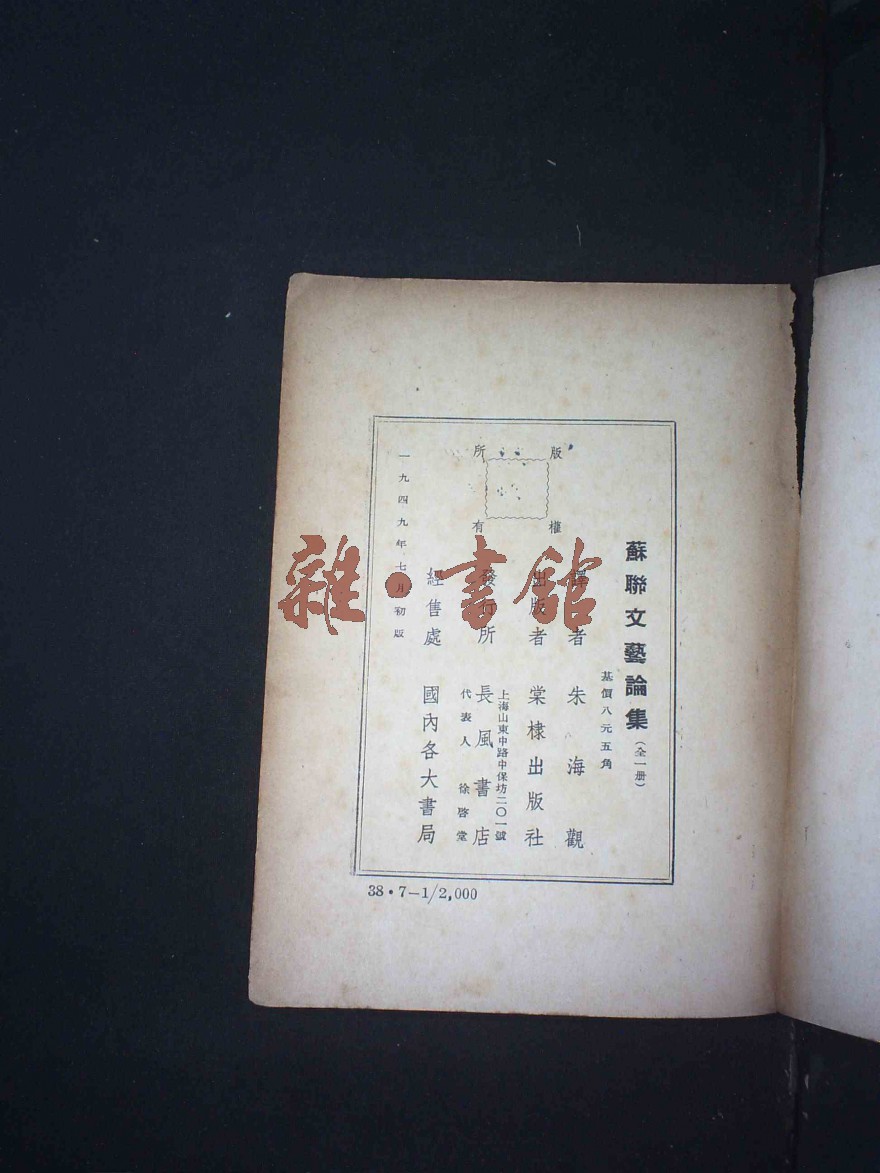 蘇聯文藝論集（全一册）
基價八元五角
譯者 朱海觀
出版者 棠棣出版社
發行所 長風書店
上海山東中路中保坊二〇一號
代表人 徐啓堂
經售處 國內各大書局
版權所有
一九四九年七月初版
38·7—1/2,000
雜·書館